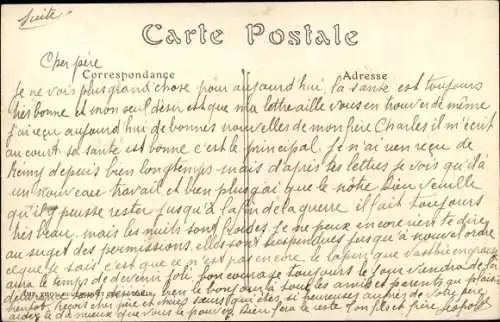 Suite
Carte Postale
Cher père
Correspondance
Adresse
Je ne vois plus grand chose pour aujourd'hui, la santé est toujours
très bonne et mon seul désir est que ma lettre aille vous en trouver de même
j'ai reçu aujourd'hui de bonnes nouvelles de mon frère Charles il m'écrit
au court sa santé est bonne c'est le principal. Je n'ai rien reçu de
Rémy depuis bien longtemps mais d'après tes lettres je vois qu'il a
un nouveau travail et bien plus gai que le nôtre Dieu veuille
qu'il y puisse rester jusqu'à la fin de la guerre il fait toujours
très beau mais les nuits sont froides. Je ne peux encore rien te dire
au sujet des permissions, elles sont suspendues jusqu'à nouvel ordre
ce que je sais c'est que ce n'est pas encore le
aura le temps de devenir joli bon courage toujours le jour viendra de là
bien le bonjour à tous les amis et parents
reçois cher père et chères sœurs
aider à de mieux que vous le pouvez ton fils et frère Léopold